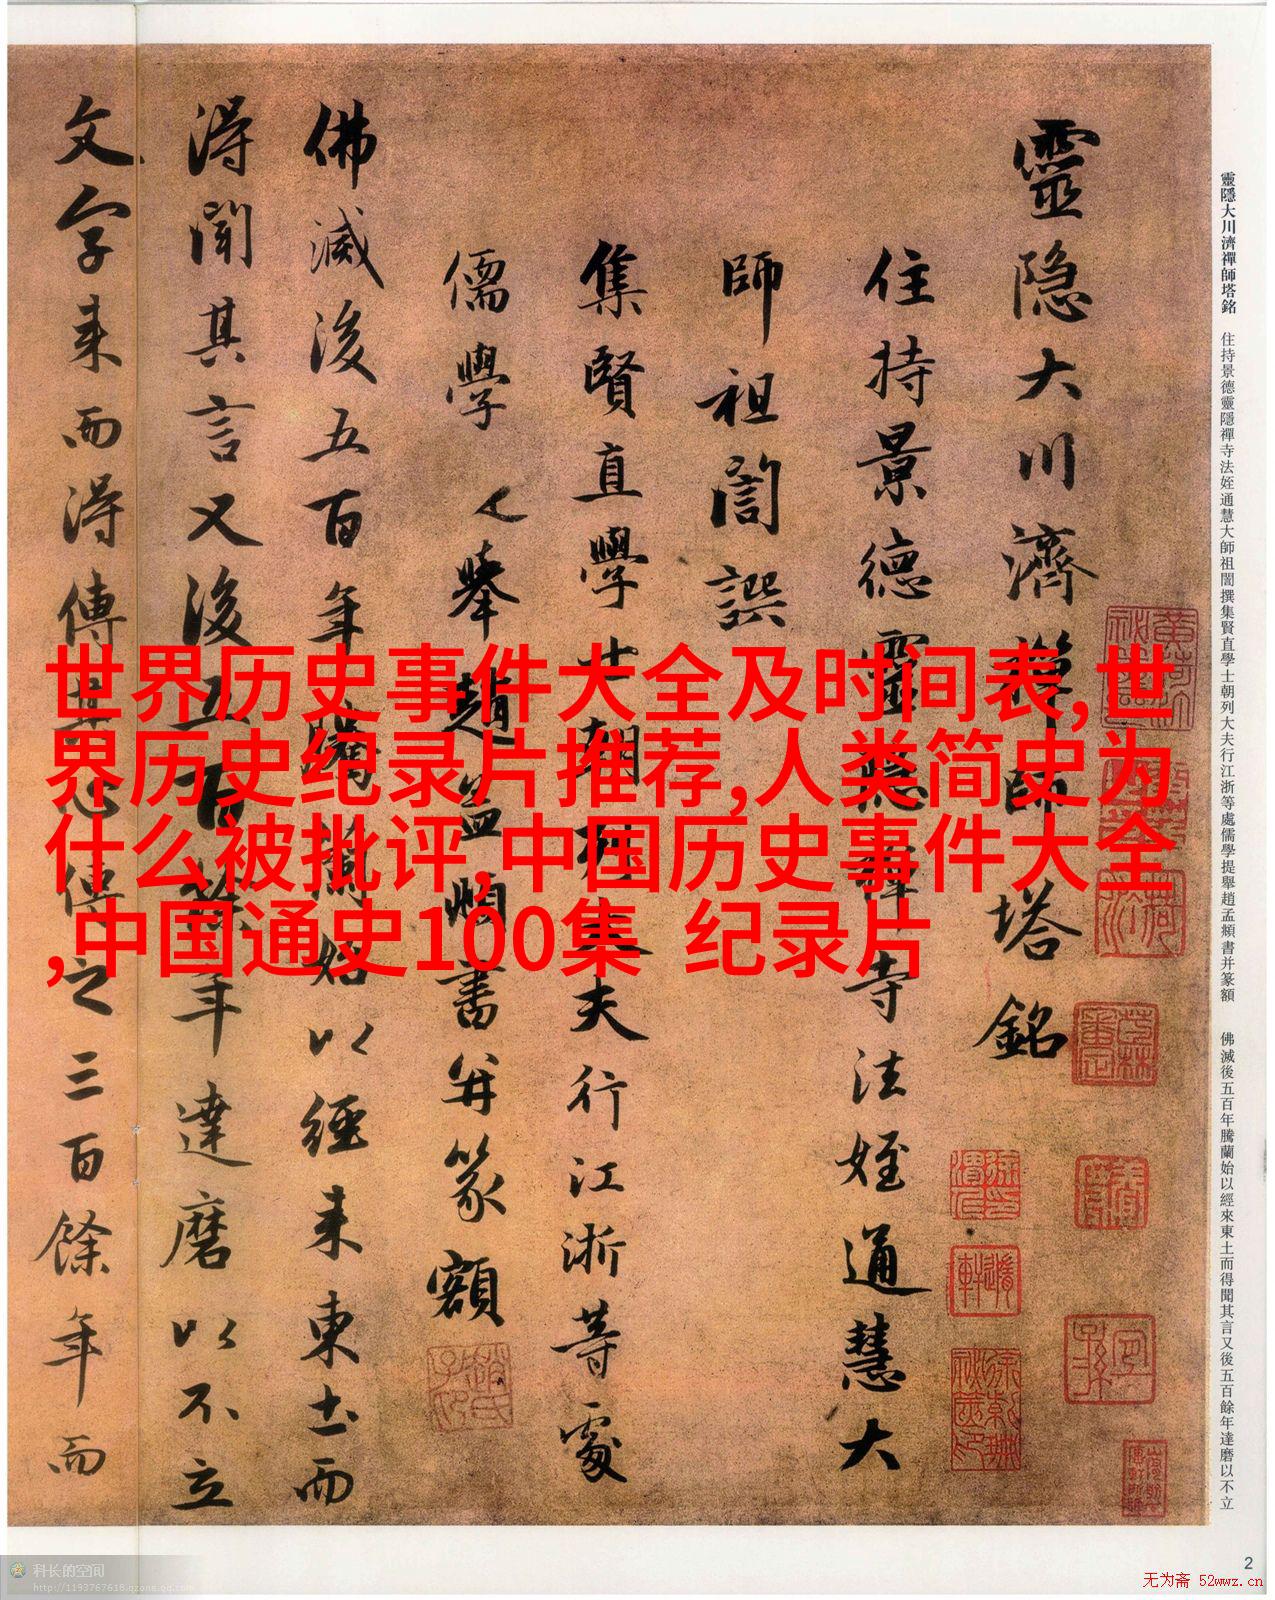 靈隱大川濟禪師塔銘 住持景德靈隱禪寺法姪通慧大師祖誾撰集賢直學士朝列大夫行江浙等處儒學提舉趙孟頫書并篆額 佛滅後五百年騰蘭始以經來東土而得聞其言又後五百餘年達磨以不立
靈隐大川濟禪師塔銘
住持景德靈隐禪寺法姪通慧大
師祖誾譔
集賢直學士朝列大夫行江浙等處
儒學提舉趙孟頫書并篆額
佛滅後五百年騰蘭始以經来東土而
淂聞其言又後五百餘年達磨以不立
文字来而淂傳其心傳之三百餘年而
世界历史事件大全及时间表,世
界历史纪录片推荐,人类简史为
什么被批评,中国历史事件大全
,中国通史100集 纪录片
2
科长的空间
http://1193767618.qzone.qq.com
无为斋 52wwz.cn